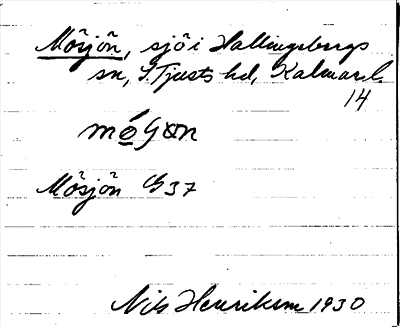 Mösjön, sjö i Hallingebergs
sn, S. Tjusts hd, Kalmar l.
14
Mösjön 37
Nils Henriksson 1930